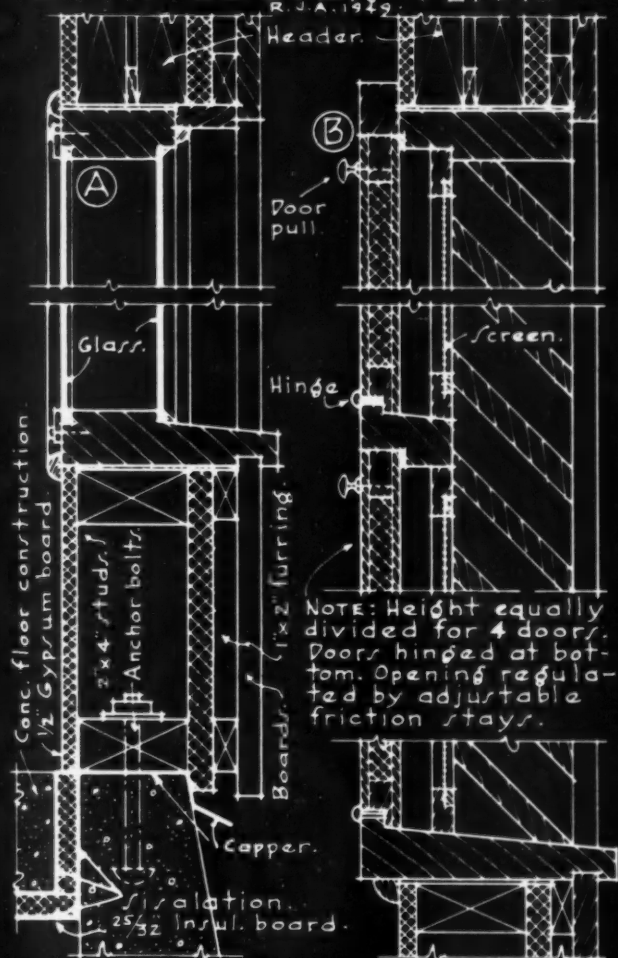 R.J.A. 1949.
Header.
A
B
Door
pull.
Glass.
Screen.
Hinge
Conc. floor construction.
1/2" Gypsum board.
2"x4" studs.
Anchor bolts.
1"x2" furring.
Boards.
NOTE: Height equally
divided for 4 doors.
Doors hinged at bot-
tom. Opening regula-
ted by adjustable
friction stays.
Copper.
Sisalation.
25/32" Insul. board.